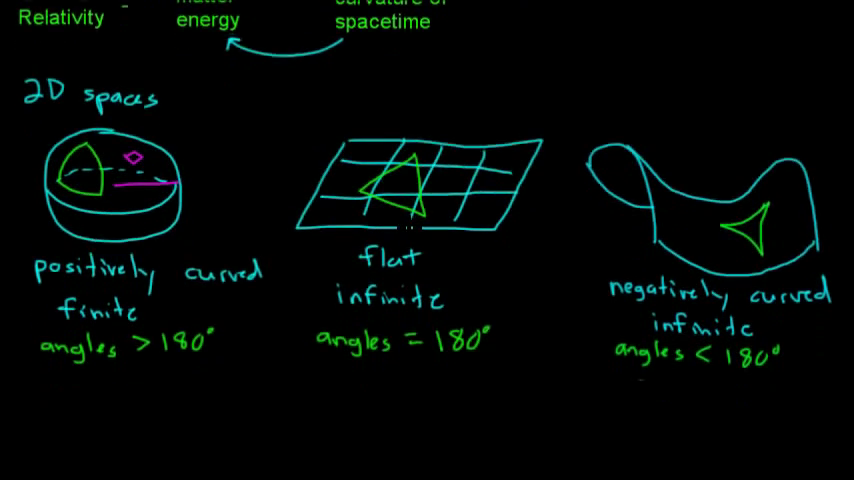 Relativity
energy
spacetime
2D spaces
positively curved
finite
angles > 180°
flat
infinite
angles = 180°
negatively curved
infinite
angles < 180°